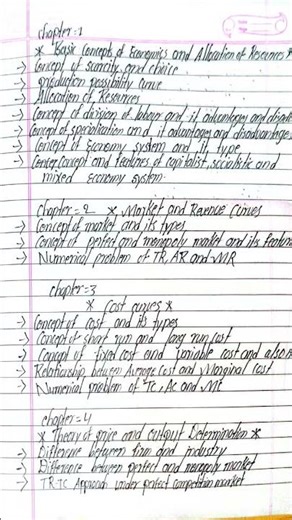 chapter:1
* Basic Concepts of Economics and Allocation of Resources *
-> Concept of scarcity and choice
-> production possibility curve
-> Allocation of Resources
-> Concept of division of labour and it advantages and disadv
-> Concept of specialization and it advantages and disadvantages
-> Concept of Economy system and its type
-> Concept and features of capitalist, socialistic and
mixed economy system
chapter=2 * Market and Revenue Curves
-> Concept of market and its types
-> Concept of perfect and monopoly market and its features
-> Numerical problem of TR, AR and MR
chapter=3
* Cost curves *
-> Concept of cost and its types
-> Concept of short run and long run cost
-> Concept of fixed cost and variable cost and also
-> Relationship between Average cost and Marginal cost
-> Numerical problem of TC, AC and MC
chapter=4
* Theory of price and output Determination *
-> Difference between firm and industry
-> Difference between perfect and monopoly market
-> TR-TC Approach under perfect competition market